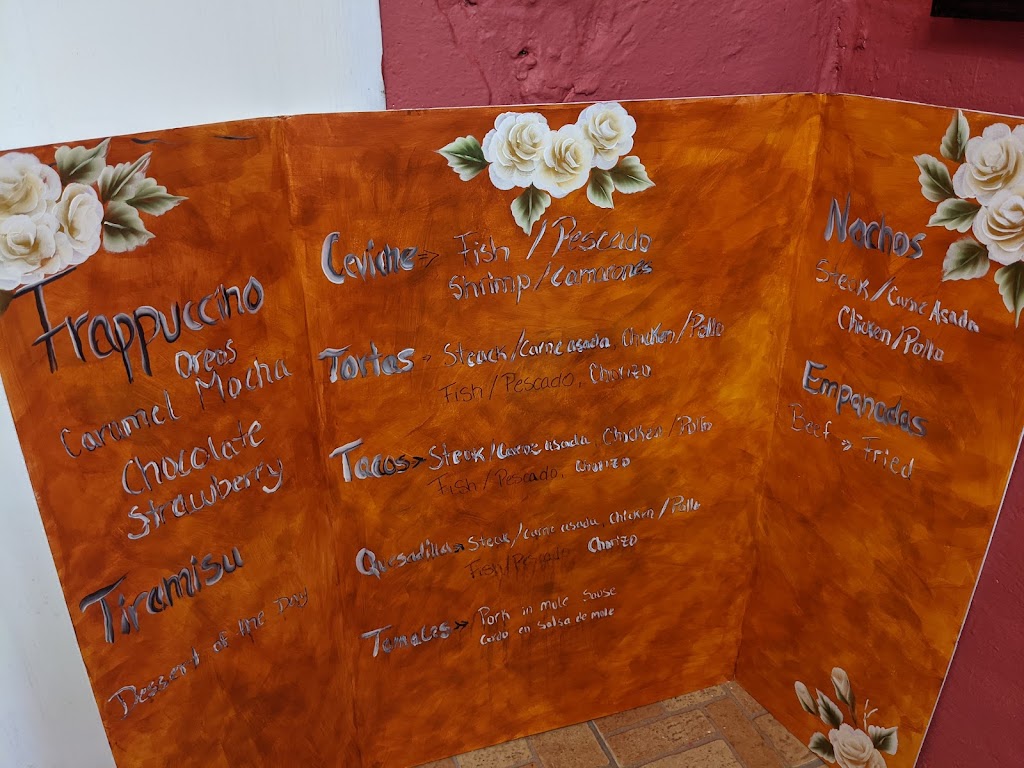 Frappuccino
Oreos
Caramel Mocha
Chocolate
Strawberry
Tiramisu
Dessert of the Day
Ceviche Fish / Pescado
Shrimp / Camarones
Tortas Steack / Carne asada, Chicken / Pollo
Fish / Pescado, Chorizo
Tacos Steak / Carne asada, Chicken / Pollo
Fish / Pescado, Chorizo
Quesadilla Steak / Carne asada, Chicken / Pollo
Fish / Pescado Chorizo
Tamales Pork in mole Sause
Cerdo en Salsa de mole
Nachos
Steak / Carne Asada
Chicken / Pollo
Empanadas
Beef → Fried